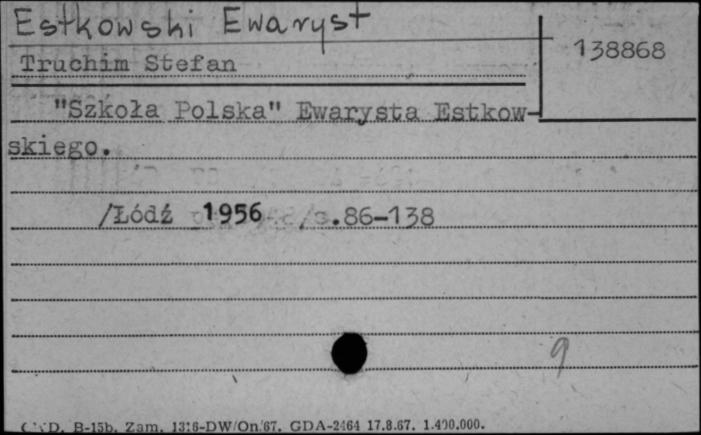 Estkowski Ewaryst
138868
Truchim Stefan
"Szkoła Polska" Ewarysta Estkow-
skiego.
/Łódź 1956 /s.86-138
9
B-15b. Zam. 1316-DW/On/67. GDA-2464 17.8.67. 1.400.000.